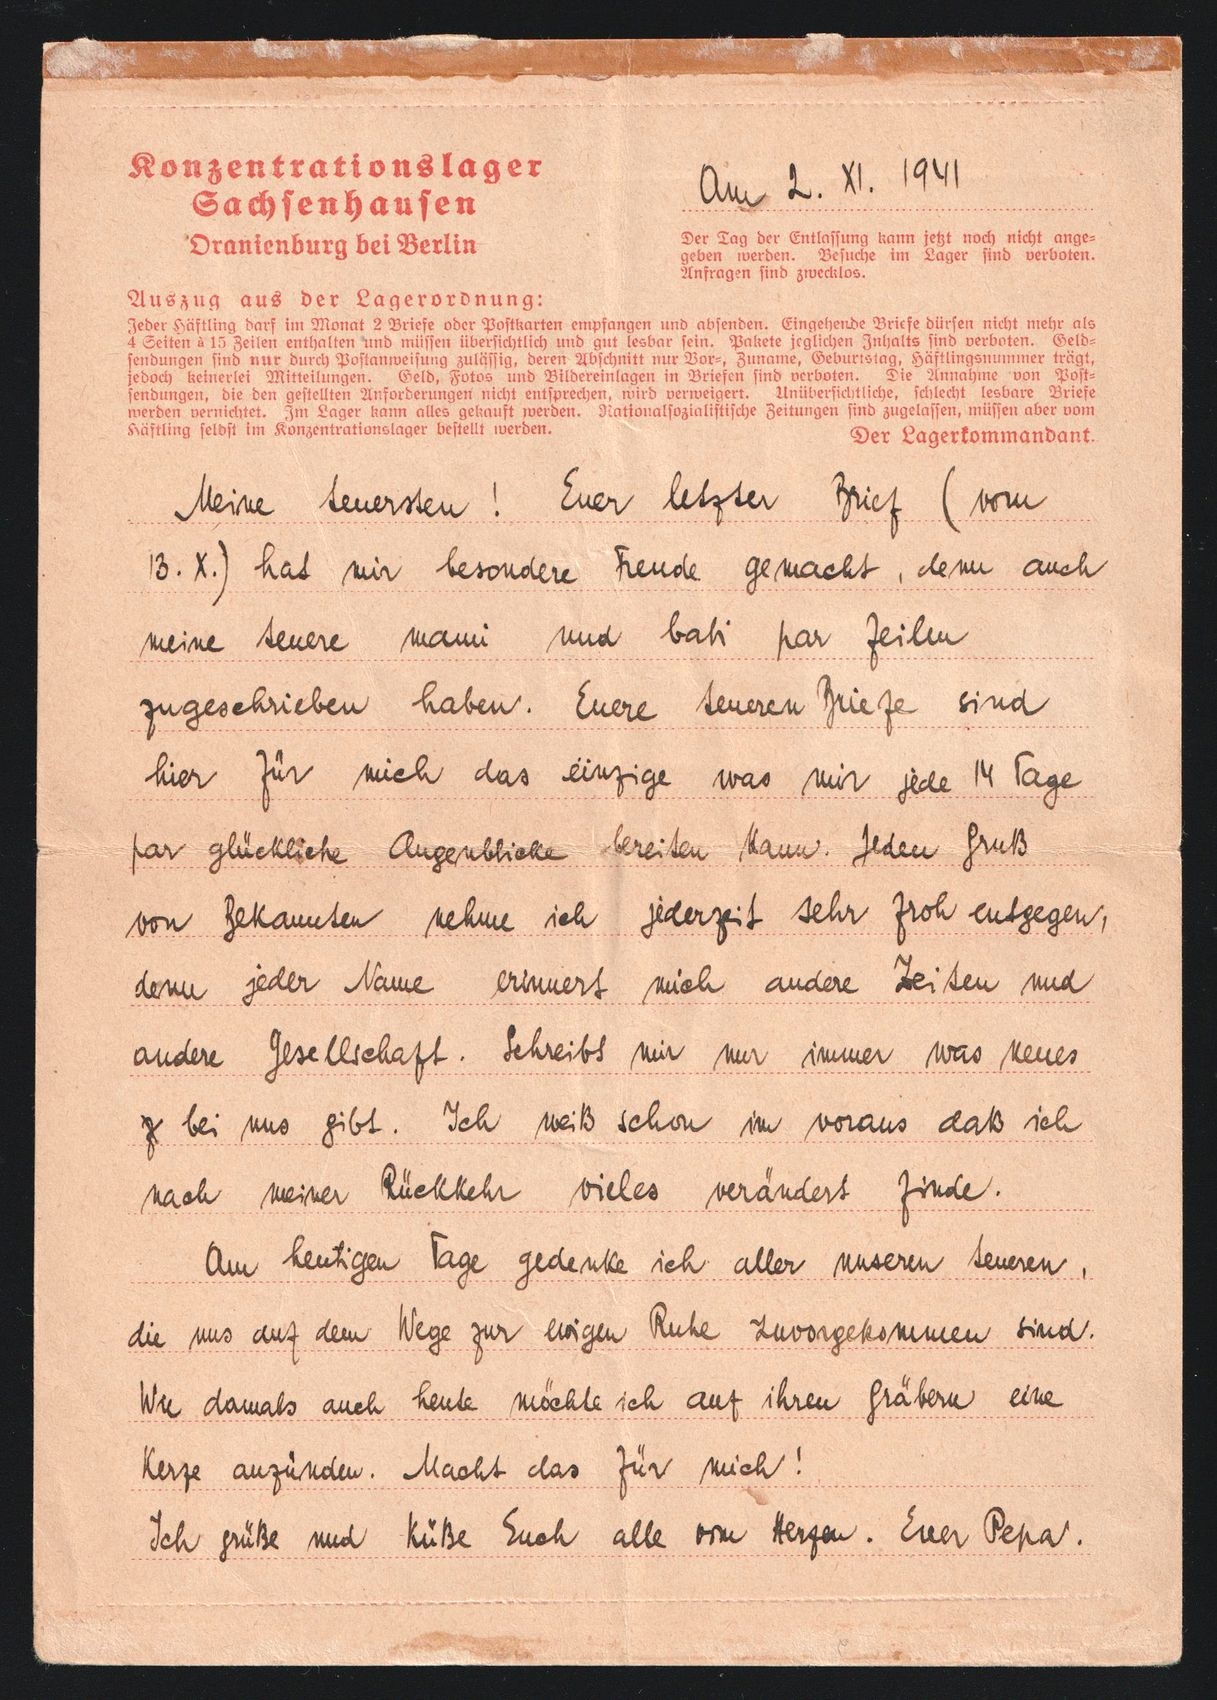 Konzentrationslager
Sachsenhausen
Oranienburg bei Berlin
Am 2. XI. 1941
Der Tag der Entlassung kann jetzt noch nicht ange-
geben werden. Besuche im Lager sind verboten.
Anfragen sind zwecklos.
Auszug aus der Lagerordnung:
Jeder Häftling darf im Monat 2 Briefe oder Postkarten empfangen und absenden. Eingehende Briefe dürfen nicht mehr als
4 Seiten à 15 Zeilen enthalten und müssen übersichtlich und gut lesbar sein. Pakete jeglichen Inhalts sind verboten. Geld-
sendungen sind nur durch Postanweisung zulässig, deren Abschnitt nur Vor-, Zuname, Geburtstag, Häftlingsnummer trägt,
jedoch keinerlei Mitteilungen. Geld, Fotos und Bildereinlagen in Briefen sind verboten. Die Annahme von Post-
sendungen, die den gestellten Anforderungen nicht entsprechen, wird verweigert. Unübersichtliche, schlecht lesbare Briefe
werden vernichtet. Im Lager kann alles gekauft werden. Nationalsozialistische Zeitungen sind zugelassen, müssen aber vom
Häftling selbst im Konzentrationslager bestellt werden.
Der Lagerkommandant.
Meine teuersten! Euer letzter Brief (vom
13. X.) hat mir besondere Freude gemacht, denn auch
meine teuere mami und bati par Zeilen
zugeschrieben haben. Euere teueren Briefe sind
hier für mich das einzige was mir jede 14 Tage
par glückliche Augenblicke bereiten kann. Jeden Gruß
von Bekannten nehme ich jederzeit sehr froh entgegen,
denn jeder Name erinnert mich andere Zeiten und
andere Gesellschaft. Schreibt mir nur immer was neues
bei uns gibt. Ich weiß schon im voraus daß ich
nach meiner Rückkehr vieles verändert finde.
Am heutigen Tage gedenke ich aller unseren teueren,
die uns auf dem Wege zur ewigen Ruhe zuvorgekommen sind.
Wie damals auch heute möchte ich auf ihren Gräbern eine
Kerze anzünden. Macht das für mich!
Ich grüße und küße Euch alle vom Herzen. Euer Pepa.